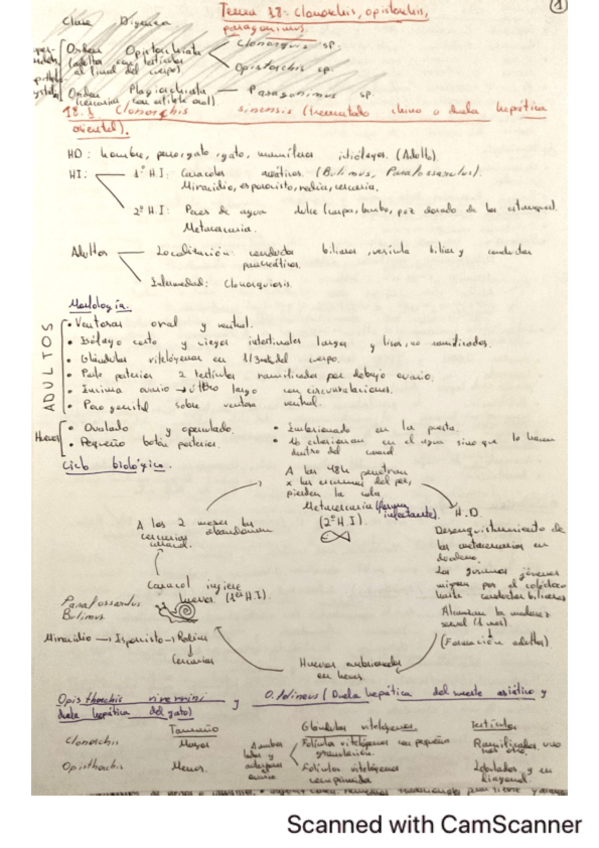 Tema 18: Clonorchis, opistorchis,
paragonimus.
1
Clase Digenea
Orden Opistorchiata
Clonorquis sp.
(adultos con testículos
al final del cuerpo)
Opistorchis sp.
Orden Plagiorchiata Paragonimus sp.
(cercaria con estilete oral)
18.1. Clonorchis sinensis (trematodo chino o duela hepática
oriental).
HD: hombre, perro, gato, mamíferos ictiófagos. (Adulto)
HI: 1º H.I: Caracoles acuáticos. (Bulimus, Parafossarulus).
Miracidio, esporocisto, redia, cercaria.
2º H.I: Peces de agua dulce
Metacercaria.
Adultos Localización: conductos biliares, vesícula biliar y conductos
pancreáticos.
Enfermedad: Clonorquiosis.
Morfología:
ADULTOS
• Ventosas oral y ventral.
• Esófago corto y ciegos intestinales largos y lisos, no ramificados.
• Glándulas vitelógenas en 1/3 del cuerpo.
• Parte posterior 2 testículos ramificados por debajo ovario.
• Encima ovario → útero largo con circunvoluciones.
• Poro genital sobre ventosa ventral.
Huevos
• Ovalado y operculado.
• Pequeño botón posterior.
• Embrionado en la puesta.
• No eclosionan en el agua sino que lo hacen
dentro del caracol
Ciclo biológico.
A las 48h penetran
x las escamas del pez,
pierden la cola
Metacercaria (forma
infectante).
(2º H.I).
H.D.
Desenquistamiento de
las metacercarias en
duodeno.
Los gusanos jóvenes
migran por el colédoco
hasta conductos biliares
Alcanzan la madurez
sexual
(Formación adultos)
Huevos embrionados
en heces
Caracol ingiere
huevo (1º H.I)
Parafossarulus
Bulimus
Miracidio → Esporocisto → Redias
↓
Cercarias
A los 2 meses las
cercarias abandonan
caracol.
Opisthorchis viverrini y O. felineus (Duela hepática del sureste asiático y
duela hepática del gato)
Tamaño Glándulas vitelógenas. Testículos
Clonorchis Mayor Folículos vitelógenos con pequeña
granulación. Ramificados uno
Opisthorchis Menor. Folículos vitelógenos
Lobulados y en
diagonal.
Scanned with CamScanner